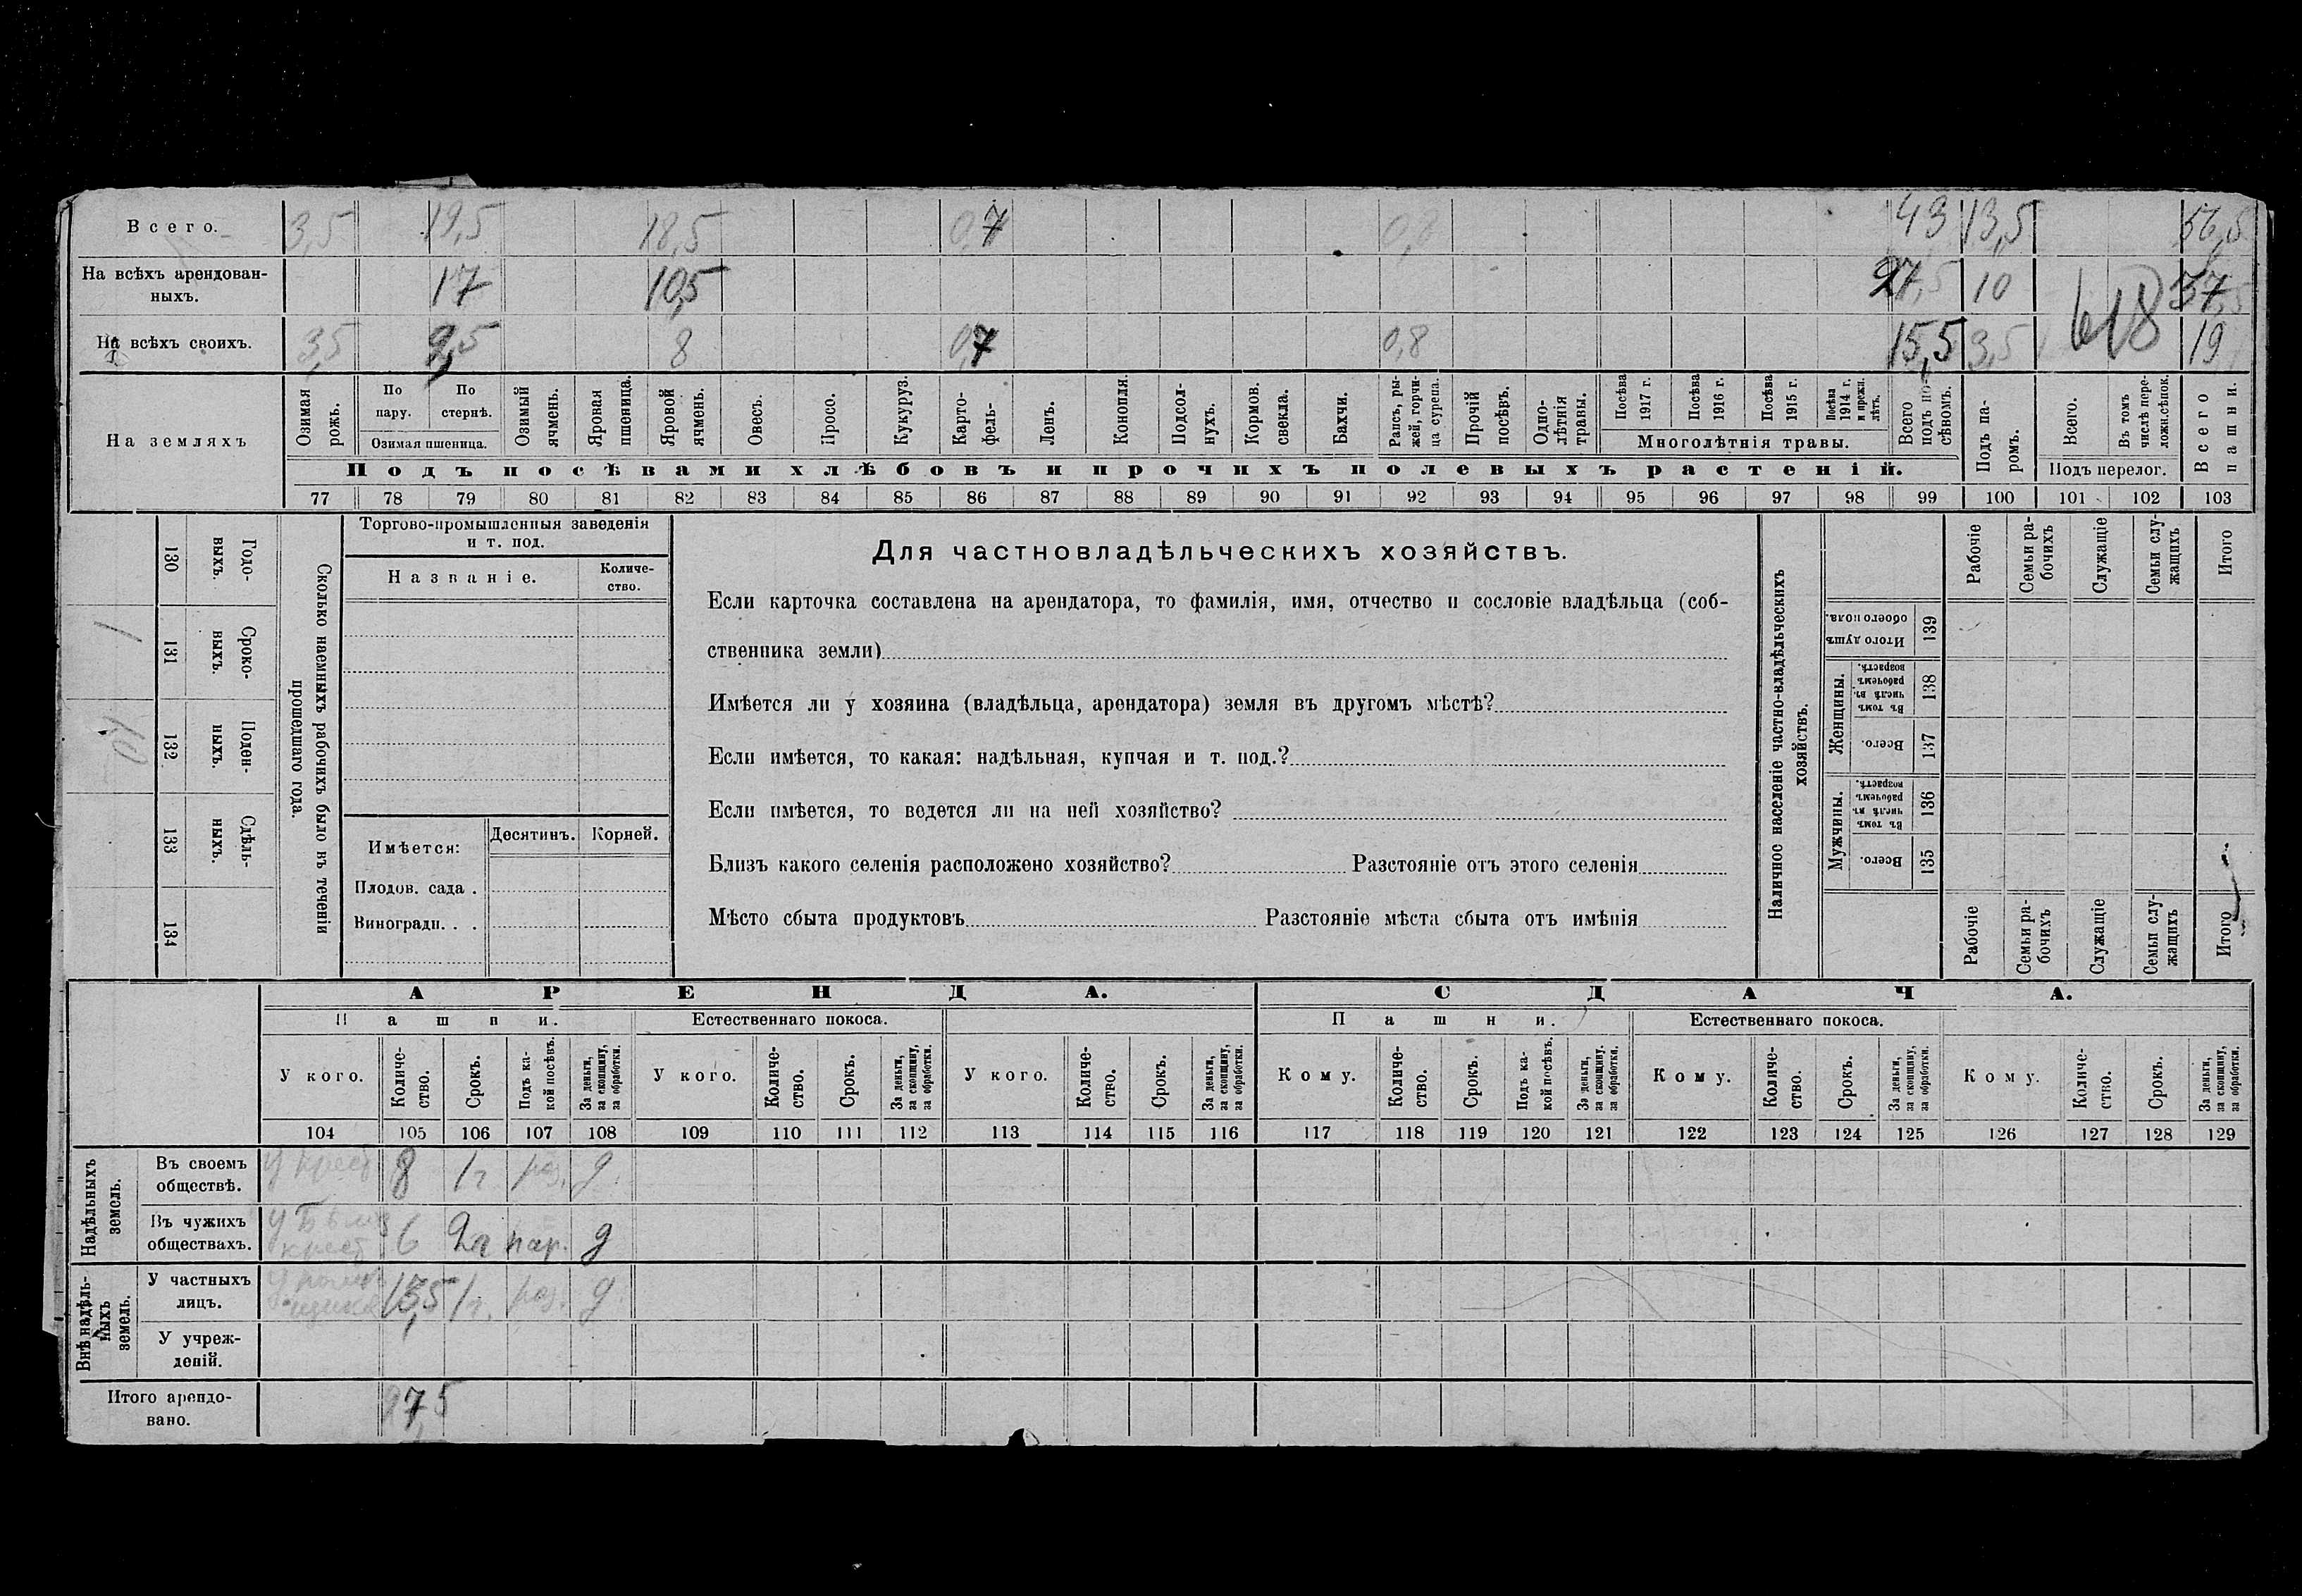 Всего. 3,5 19,5 18,5 0,7 0,8 43 13,5 56,5
На всѣхъ арендован-
ныхъ. 17 10,5 27,5 10 37,5
На всѣхъ своихъ. 3,5 2,5 8 0,7 0,8 15,5 3,5 19
618
На земляхъ
Озимая рожь.
По пару.
По стернѣ.
Озимая пшеница.
Озимый ячмень.
Яровая пшеница.
Яровой ячмень.
Овесъ.
Просо.
Кукуруз.
Карто-
фель-
Ленъ.
Конопля.
Подсол-
нухъ.
Кормов. свекла.
Бахчи.
Рапсъ, ры-
жей, горчи-
ца сурепа.
Прочій посѣвъ.
Одно-
лѣтнія травы.
Посѣва 1917 г.
Посѣва 1916 г.
Посѣва 1915 г.
Посѣва 1914 г. и прежн. лѣтъ.
Многолѣтнія травы.
Всего подъ по-
сѣвомъ.
Подъ па-
ромъ.
Всего.
Въ томъ числѣ пере-
ложн.сѣнок.
Подъ перелог.
Всего пашни.
Подъ посѣвами хлѣбовъ и прочихъ полевыхъ растеній.
77 78 79 80 81 82 83 84 85 86 87 88 89 90 91 92 93 94 95 96 97 98 99 100 101 102 103
Сколько наемныхъ рабочихъ было въ теченіи
прошедшаго года.
Годо-
выхъ.
130
Сроко-
выхъ.
131
1
Поден-
ныхъ.
132
Сдѣль-
ныхъ.
133
134
Торгово-промышленныя заведенія
и т. под.
Названіе.
Количе-
ство.
Имѣется:
Десятинъ.
Корней.
Плодов. сада .
Виноградн. . .
Для частновладѣльческихъ хозяйствъ.
Если карточка составлена на арендатора, то фамилія, имя, отчество и сословіе владѣльца (соб-
ственника земли)
Имѣется ли у хозяина (владѣльца, арендатора) земля въ другомъ мѣстѣ?
Если имѣется, то какая: надѣльная, купчая и т. под.?
Если имѣется, то ведется ли на ней хозяйство?
Близъ какого селенія расположено хозяйство? Разстояніе отъ этого селенія
Мѣсто сбыта продуктовъ Разстояніе мѣста сбыта отъ имѣнія
Наличное населеніе частно-владѣльческихъ
хозяйствъ.
Рабочіе
Семьи ра-
бочихъ
Служащіе
Семьи слу-
жащихъ
Итого
Итого душъ обоего пола.
139
Женщины.
Въ томъ числѣ въ рабочемъ возрастѣ.
138
Всего.
137
Мужчины.
Въ томъ числѣ въ рабочемъ возрастѣ.
136
Всего.
135
Рабочіе
Семьи ра-
бочихъ
Служащіе
Семьи слу-
жащихъ
Итого
АРЕНДА. СДАЧА.
Пашни. Естественнаго покоса. Пашни. Естественнаго покоса.
У кого.
Количе-
ство.
Срокъ.
Подъ ка-
кой посѣвъ.
За деньги,
за скопщину,
за обработки.
У кого.
Количе-
ство.
Срокъ.
За деньги,
за скопщину,
за обработки.
У кого.
Количе-
ство.
Срокъ.
За деньги,
за скопщину,
за обработки.
Кому.
Количе-
ство.
Срокъ.
Подъ ка-
кой посѣвъ.
За деньги,
за скопщину.
за обработки.
Кому.
Количе-
ство.
Срокъ.
За деньги,
за скопщину,
за обработки.
Кому.
Количе-
ство.
Срокъ.
За деньги,
за скопщину,
за обработки.
104 105 106 107 108 109 110 111 112 113 114 115 116 117 118 119 120 121 122 123 124 125 126 127 128 129
Надѣльныхъ
земель.
Въ своемъ
обществѣ.
у крест 8 1г. раз. д.
Въ чужихъ
обществахъ.
у
крест 6 2г пар. д
Внѣнадѣль-
ныхъ
земель.
У частныхъ
лицъ.
13,5 1г. раз. д
У учреж-
деній.
Итого арендо-
вано. 27,5